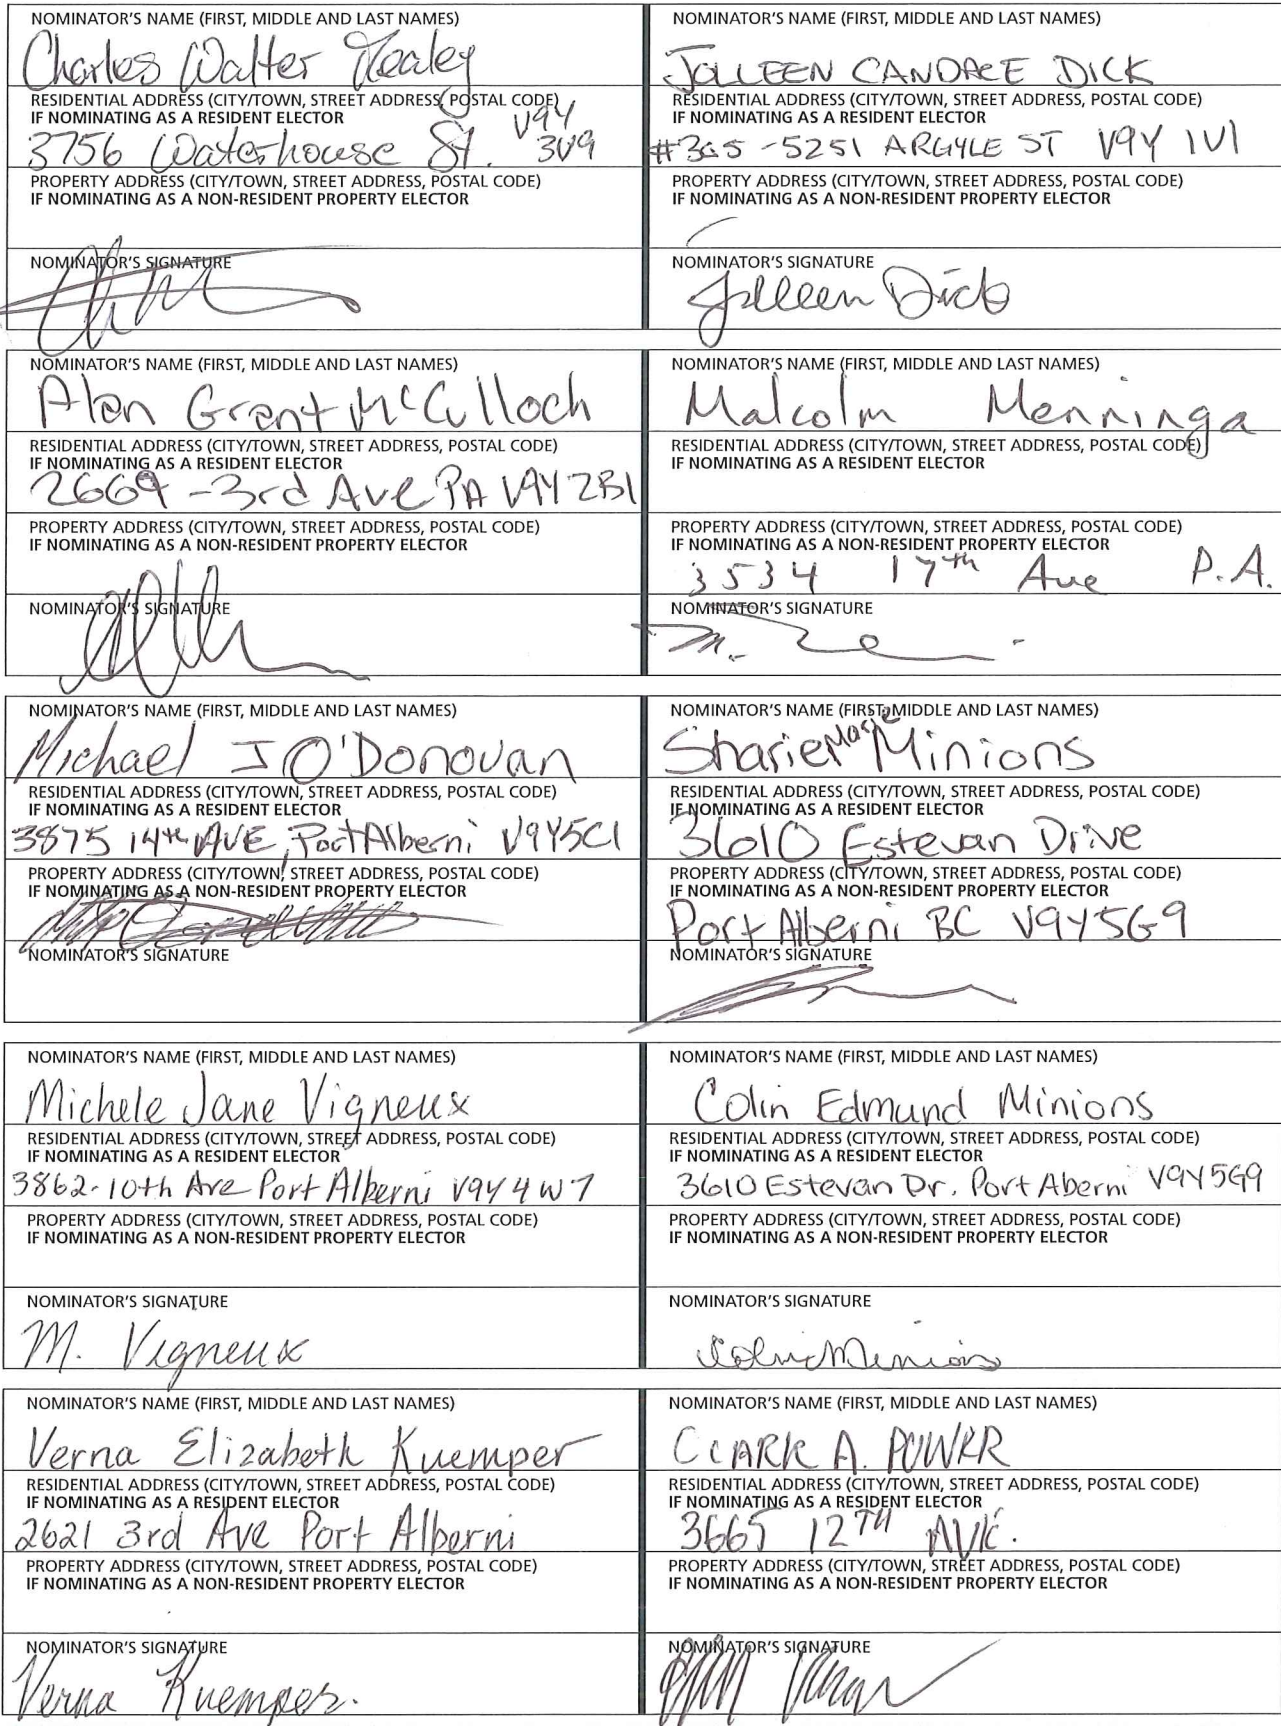 NOMINATOR'S NAME (FIRST, MIDDLE AND LAST NAMES)
Charles Walter Tealey
RESIDENTIAL ADDRESS (CITY/TOWN, STREET ADDRESS, POSTAL CODE)
IF NOMINATING AS A RESIDENT ELECTOR
3756 Waterhouse St. V9Y 3V9
PROPERTY ADDRESS (CITY/TOWN, STREET ADDRESS, POSTAL CODE)
IF NOMINATING AS A NON-RESIDENT PROPERTY ELECTOR
NOMINATOR'S SIGNATURE
NOMINATOR'S NAME (FIRST, MIDDLE AND LAST NAMES)
JOLLEEN CANDACE DICK
RESIDENTIAL ADDRESS (CITY/TOWN, STREET ADDRESS, POSTAL CODE)
IF NOMINATING AS A RESIDENT ELECTOR
#305 - 5251 ARGYLE ST V9Y 1V1
PROPERTY ADDRESS (CITY/TOWN, STREET ADDRESS, POSTAL CODE)
IF NOMINATING AS A NON-RESIDENT PROPERTY ELECTOR
NOMINATOR'S SIGNATURE
Jolleen Dick
NOMINATOR'S NAME (FIRST, MIDDLE AND LAST NAMES)
Alan Grant McCulloch
RESIDENTIAL ADDRESS (CITY/TOWN, STREET ADDRESS, POSTAL CODE)
IF NOMINATING AS A RESIDENT ELECTOR
2669 - 3rd Ave PA V9Y 2B1
PROPERTY ADDRESS (CITY/TOWN, STREET ADDRESS, POSTAL CODE)
IF NOMINATING AS A NON-RESIDENT PROPERTY ELECTOR
NOMINATOR'S SIGNATURE
NOMINATOR'S NAME (FIRST, MIDDLE AND LAST NAMES)
Malcolm Menninga
RESIDENTIAL ADDRESS (CITY/TOWN, STREET ADDRESS, POSTAL CODE)
IF NOMINATING AS A RESIDENT ELECTOR
PROPERTY ADDRESS (CITY/TOWN, STREET ADDRESS, POSTAL CODE)
IF NOMINATING AS A NON-RESIDENT PROPERTY ELECTOR
3534 17th Ave P.A.
NOMINATOR'S SIGNATURE
NOMINATOR'S NAME (FIRST, MIDDLE AND LAST NAMES)
Michael J O'Donovan
RESIDENTIAL ADDRESS (CITY/TOWN, STREET ADDRESS, POSTAL CODE)
IF NOMINATING AS A RESIDENT ELECTOR
3875 14th AVE, Port Alberni V9Y5C1
PROPERTY ADDRESS (CITY/TOWN, STREET ADDRESS, POSTAL CODE)
IF NOMINATING AS A NON-RESIDENT PROPERTY ELECTOR
NOMINATOR'S SIGNATURE
NOMINATOR'S NAME (FIRST, MIDDLE AND LAST NAMES)
Sharie Marie Minions
RESIDENTIAL ADDRESS (CITY/TOWN, STREET ADDRESS, POSTAL CODE)
IF NOMINATING AS A RESIDENT ELECTOR
3610 Estevan Drive
PROPERTY ADDRESS (CITY/TOWN, STREET ADDRESS, POSTAL CODE)
IF NOMINATING AS A NON-RESIDENT PROPERTY ELECTOR
Port Alberni BC V9Y5G9
NOMINATOR'S SIGNATURE
NOMINATOR'S NAME (FIRST, MIDDLE AND LAST NAMES)
Michele Jane Vigneux
RESIDENTIAL ADDRESS (CITY/TOWN, STREET ADDRESS, POSTAL CODE)
IF NOMINATING AS A RESIDENT ELECTOR
3862-10th Ave Port Alberni V9Y 4W7
PROPERTY ADDRESS (CITY/TOWN, STREET ADDRESS, POSTAL CODE)
IF NOMINATING AS A NON-RESIDENT PROPERTY ELECTOR
NOMINATOR'S SIGNATURE
M. Vigneux
NOMINATOR'S NAME (FIRST, MIDDLE AND LAST NAMES)
Colin Edmund Minions
RESIDENTIAL ADDRESS (CITY/TOWN, STREET ADDRESS, POSTAL CODE)
IF NOMINATING AS A RESIDENT ELECTOR
3610 Estevan Dr. Port Aberni V9Y 5G9
PROPERTY ADDRESS (CITY/TOWN, STREET ADDRESS, POSTAL CODE)
IF NOMINATING AS A NON-RESIDENT PROPERTY ELECTOR
NOMINATOR'S SIGNATURE
Colin Minions
NOMINATOR'S NAME (FIRST, MIDDLE AND LAST NAMES)
Verna Elizabeth Kuemper
RESIDENTIAL ADDRESS (CITY/TOWN, STREET ADDRESS, POSTAL CODE)
IF NOMINATING AS A RESIDENT ELECTOR
2621 3rd Ave Port Alberni
PROPERTY ADDRESS (CITY/TOWN, STREET ADDRESS, POSTAL CODE)
IF NOMINATING AS A NON-RESIDENT PROPERTY ELECTOR
NOMINATOR'S SIGNATURE
Verna Kuemper.
NOMINATOR'S NAME (FIRST, MIDDLE AND LAST NAMES)
CLARK A. POWER
RESIDENTIAL ADDRESS (CITY/TOWN, STREET ADDRESS, POSTAL CODE)
IF NOMINATING AS A RESIDENT ELECTOR
3665 12TH AVE.
PROPERTY ADDRESS (CITY/TOWN, STREET ADDRESS, POSTAL CODE)
IF NOMINATING AS A NON-RESIDENT PROPERTY ELECTOR
NOMINATOR'S SIGNATURE